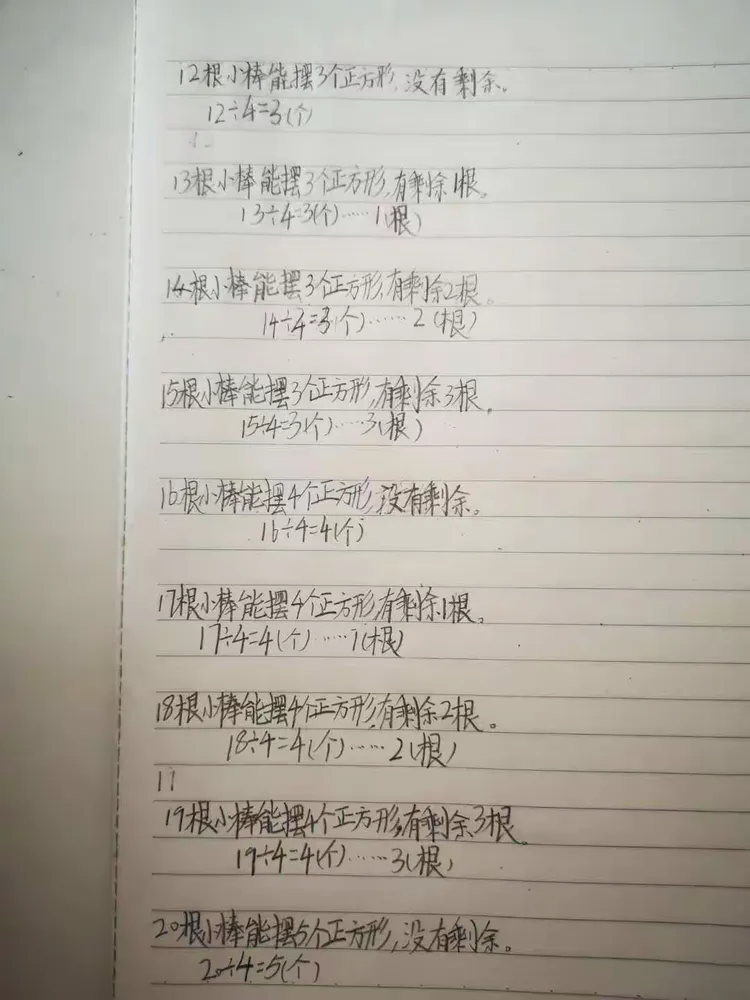 12根小棒能摆3个正方形,没有剩余。
12÷4=3(个)
13根小棒能摆3个正方形,有剩余1根。
13÷4=3(个)……1(根)
14根小棒能摆3个正方形,有剩余2根。
14÷4=3(个)……2(根)
15根小棒能摆3个正方形,有剩余3根。
15÷4=3(个)……3(根)
16根小棒能摆4个正方形,没有剩余。
16÷4=4(个)
17根小棒能摆4个正方形,有剩余1根。
17÷4=4(个)……1(根)
18根小棒能摆4个正方形,有剩余2根。
18÷4=4(个)……2(根)
11
19根小棒能摆4个正方形,有剩余3根。
19÷4=4(个)……3(根)
20根小棒能摆5个正方形,没有剩余。
20÷4=5(个)